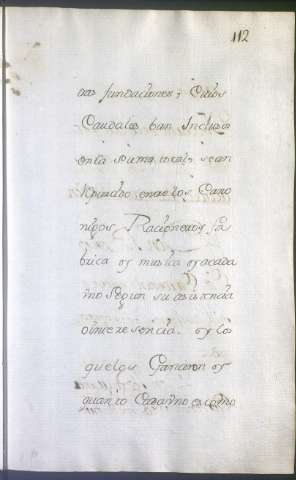 112
das fundaciones; Cuios
Caudales ban Incluidos
en la suma total; se an
Repartido entre los Cano
nigos Racioneros fa
brica y musica y a cada
vno segun su asistencia
ô interesencia. y lo
que los Ganaron y
quanto Cada vno es como